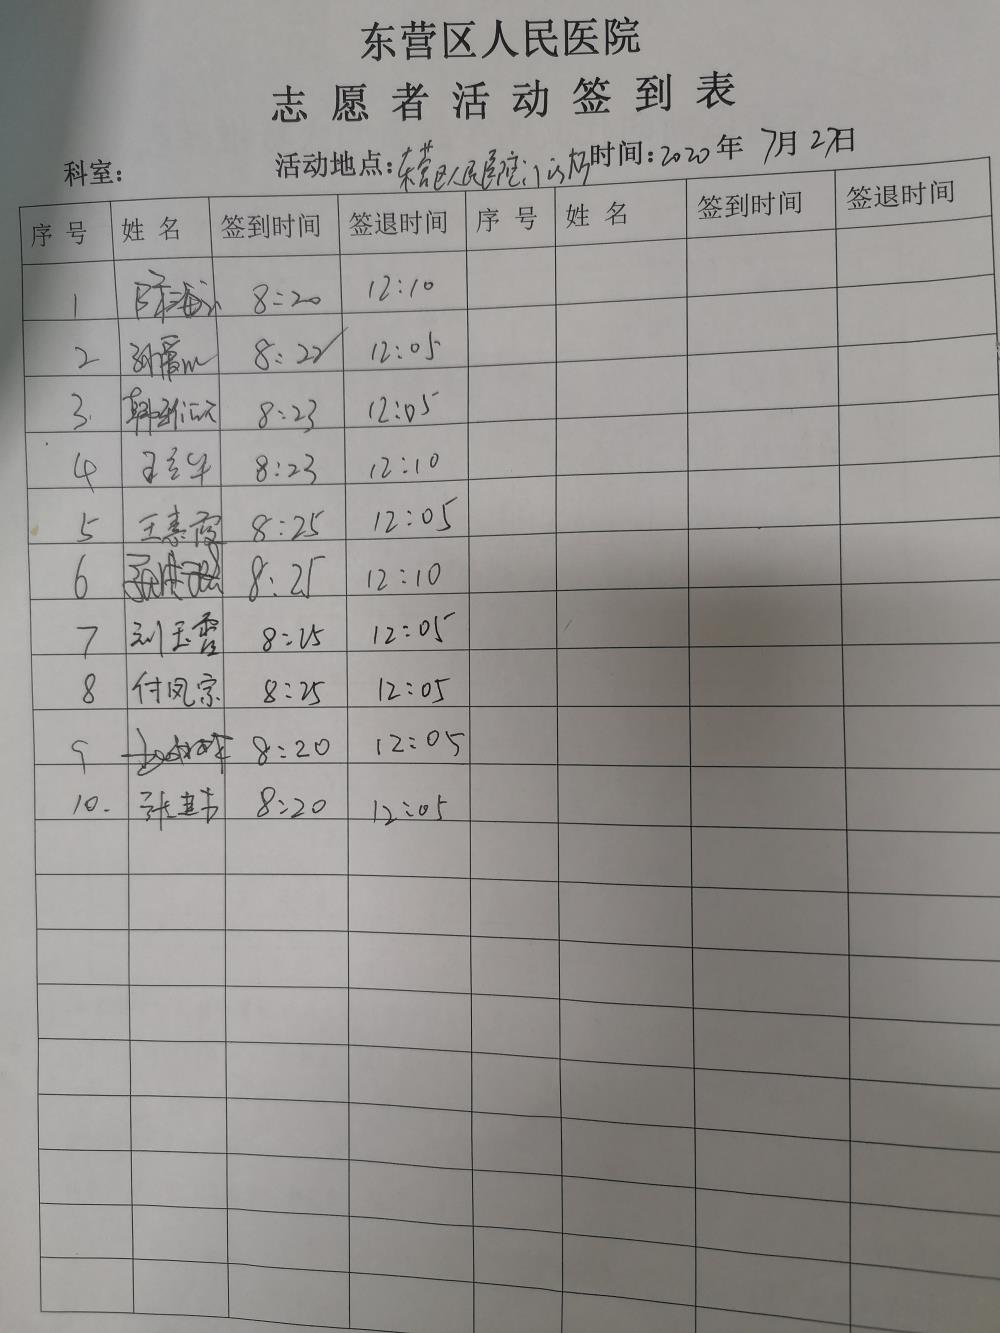 东营区人民医院
志愿者活动签到表
科室： 活动地点：东营区人民医院门诊 时间：2020年 7月27日
序号 姓名 签到时间 签退时间 序号 姓名 签到时间 签退时间
1 8:20 12:10
2 8:22 12:05
3. 8:23 12:05
4 8:23 12:10
5 王惠霞 8:25 12:05
6 8:25 12:10
7 刘玉雪 8:25 12:05
8 付凤宗 8:25 12:05
9 8:20 12:05
10. 8:20 12:05